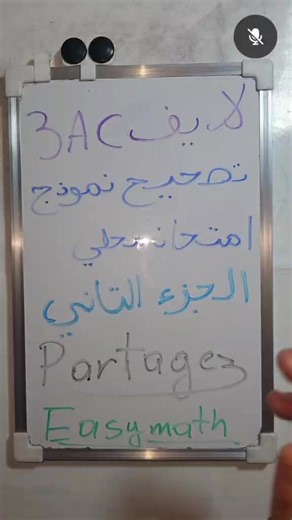 لايف 3AC
تصحيح نموذج
امتحان محلي
الجزء الثاني
Partagez
Easymath